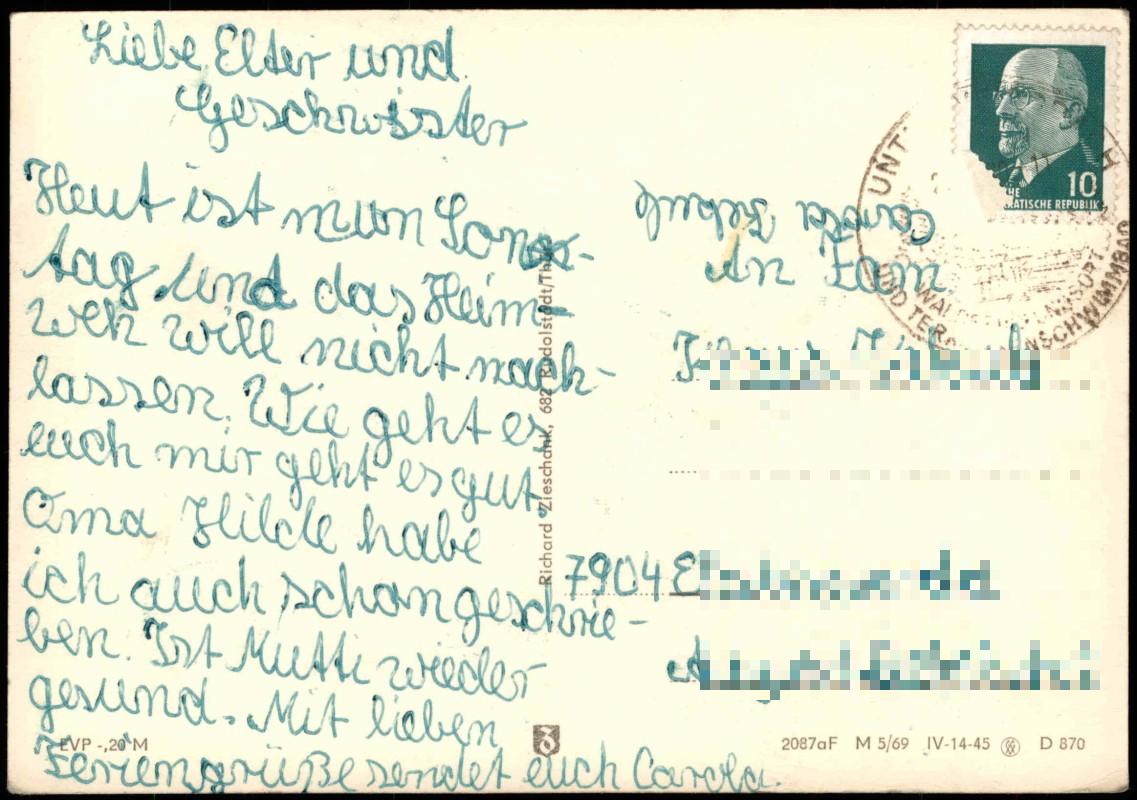 Liebe Elter und
Geschwister
Heut ist mun Sonn-
tag und das Heim-
weh will nicht nach-
lassen. Wie geht es
euch mir geht es gut
Oma Hilde habe
ich auch schon geschrie-
ben. Ist Mutti wieder
gesund. Mit lieben
Feriengrüße sendet euch Carola.
EVP -,20 M
Richard Zieschank, 682 Rudolstadt/Thür
Carola
An Fam
7904
2087aF M 5/69 IV-14-45 D 870
10
RATISCHE REPUBLIK
UNT